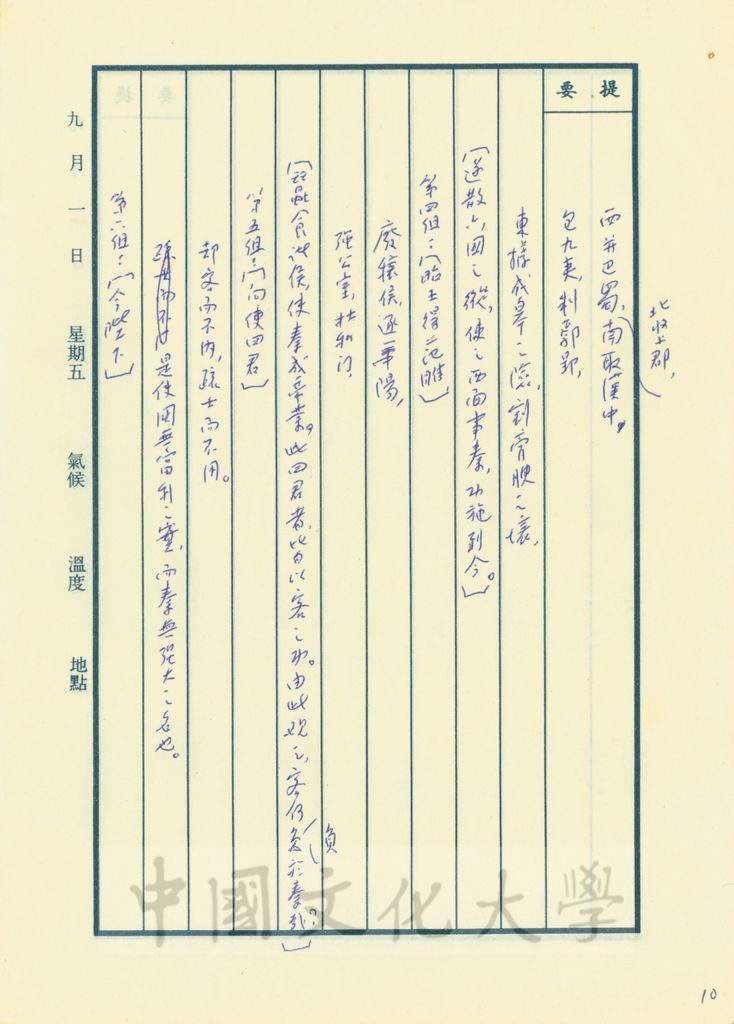 提要
北收上郡,
西并巴蜀,南取漢中。
包九夷,制鄢郢,
東據成皋之險,割膏腴之壤,
〔遂散六國之縱,使之西面事秦,功施到今。〕
第四組:〔昭王得范雎〕
廢穰侯,逐華陽,
強公室,杜私門,
〔蠶食諸侯,使秦成帝業。此四君者,皆以客之功。由此观之,客何負於秦哉?〕
負
第五組:〔向使四君〕
却客而不內,疏士而不用。
是使國無富利之實,而秦無強大之名也。
第六組:〔今陛下〕
九月一日 星期五 氣候 溫度 地點
中國文化大學
10